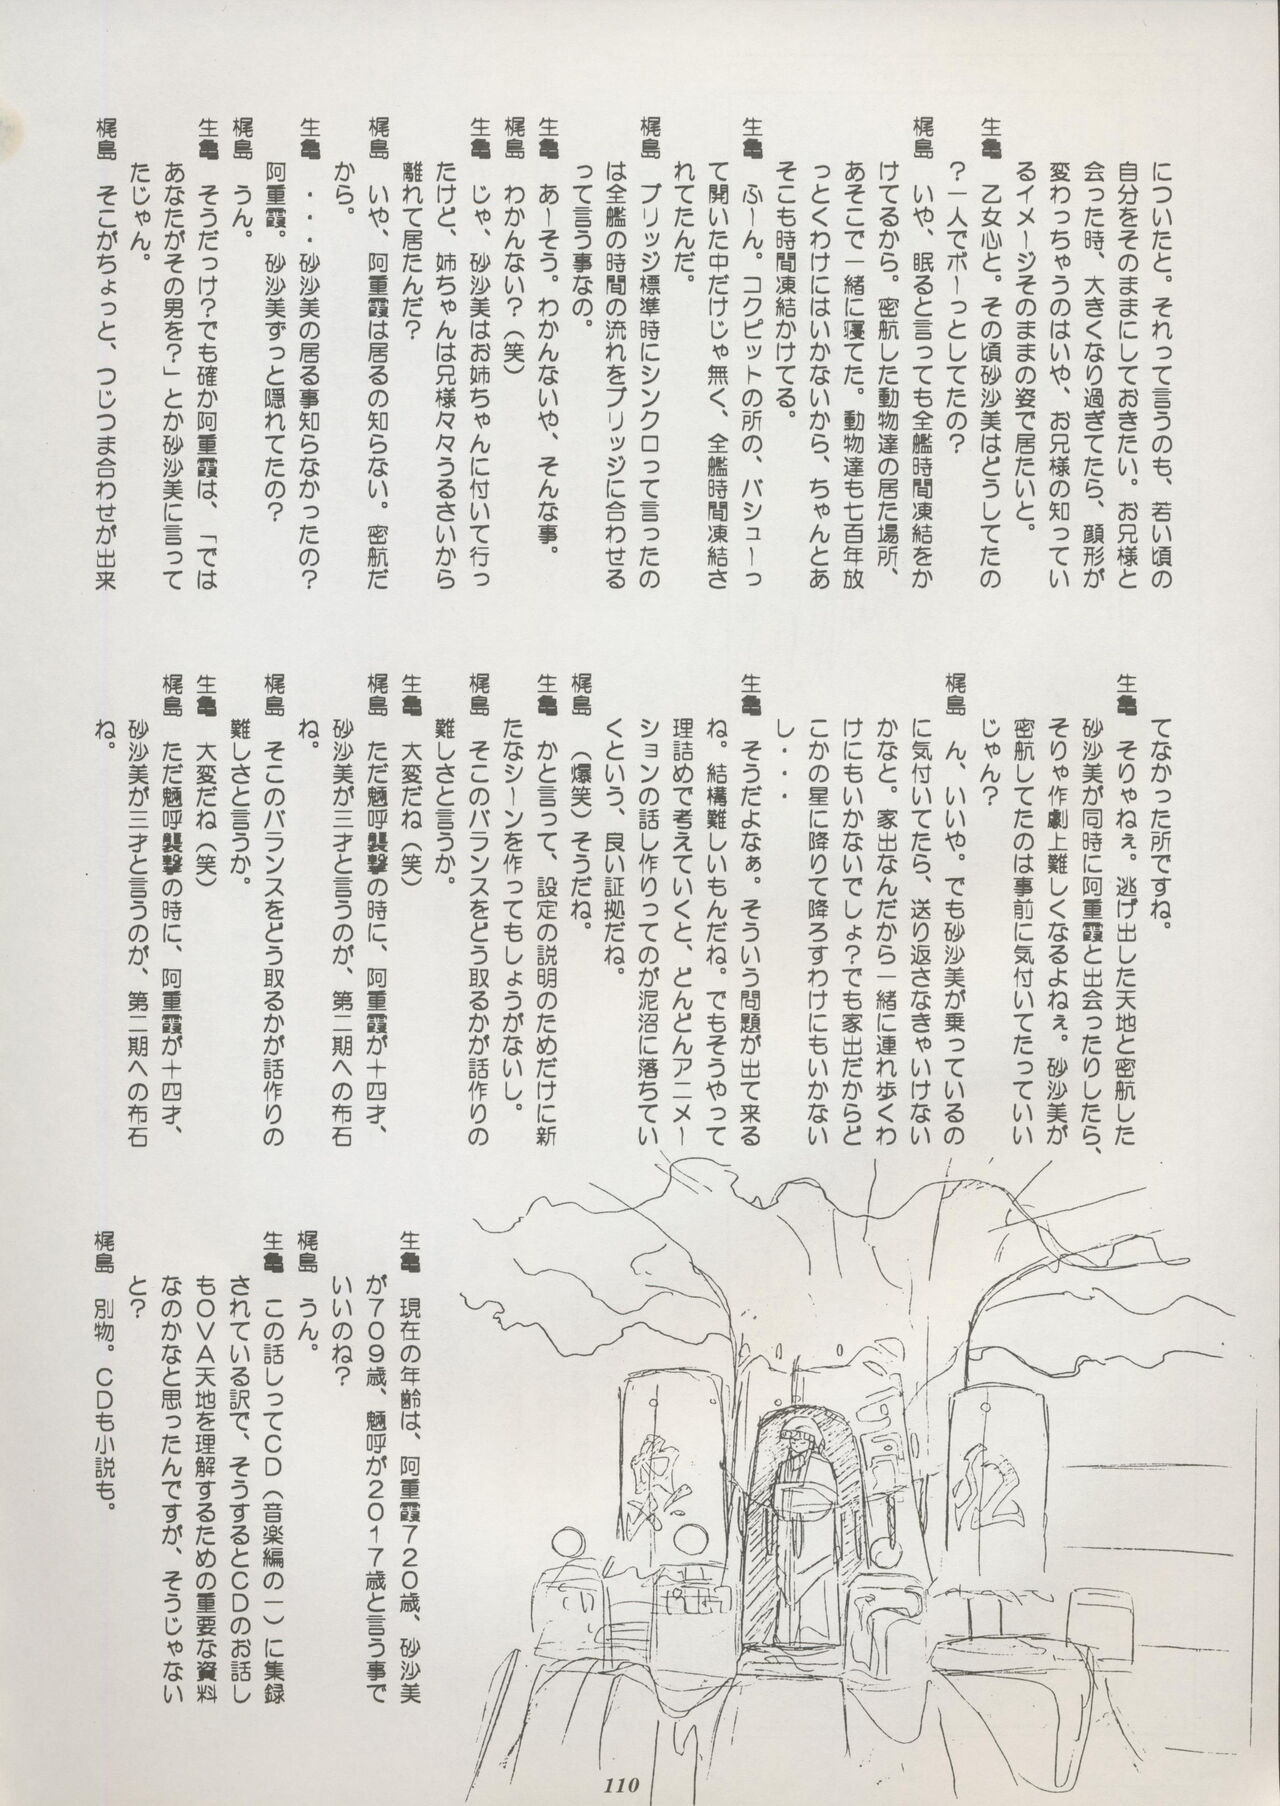 についたと。それって言うのも、若い頃の
自分をそのままにしておきたい。お兄様と
会った時、大きくなり過ぎてたら、顔形が
変わっちゃうのはいや、お兄様の知ってい
るイメージそのままの姿で居たいと。
生亀　乙女心と。その頃砂沙美はどうしてたの
？一人でボーっとしてたの？
梶島　いや、眠ると言っても全艦時間凍結をか
けてるから。密航した動物達の居た場所、
あそこで一緒に寝てた。動物達も七百年放
っとくわけにはいかないから、ちゃんとあ
そこも時間凍結かけてる。
生亀　ふーん。コクピットの所の、バシューっ
て開いた中だけじゃ無く、全艦時間凍結さ
れてたんだ。
梶島　ブリッジ標準時にシンクロって言ったの
は全艦の時間の流れをブリッジに合わせる
って言う事なの。
生亀　あーそう。わかんないや、そんな事。
梶島　わかんない？（笑）
生亀　じゃ、砂沙美はお姉ちゃんに付いて行っ
たけど、姉ちゃんは兄様々々うるさいから
離れて居たんだ？
梶島　いや、阿重霞は居るの知らない。密航だ
から。
生亀　・・・砂沙美の居る事知らなかったの？
阿重霞。砂沙美ずっと隠れてたの？
梶島　うん。
生亀　そうだっけ？でも確か阿重霞は、「では
あなたがその男を？」とか砂沙美に言って
たじゃん。
梶島　そこがちょっと、つじつま合わせが出来
てなかった所ですね。
生亀　そりゃねぇ。逃げ出した天地と密航した
砂沙美が同時に阿重霞と出会ったりしたら、
そりゃ作劇上難しくなるよねぇ。砂沙美が
密航してたのは事前に気付いてたっていい
じゃん？
梶島　ん、いいや。でも砂沙美が乗っているの
に気付いてたら、送り返さなきゃいけない
かなと。家出なんだから一緒に連れ歩くわ
けにもいかないでしょ？でも家出だからど
こかの星に降りて降ろすわけにもいかない
し・・・
生亀　そうだよなぁ。そういう問題が出て来る
ね。結構難しいもんだね。でもそうやって
理詰めで考えていくと、どんどんアニメー
ションの話し作りってのが泥沼に落ちてい
くという、良い証拠だね。
梶島　（爆笑）そうだね。
生亀　かと言って、設定の説明のためだけに新
たなシーンを作ってもしょうがないし。
梶島　そこのバランスをどう取るかが話作りの
難しさと言うか。
生亀　大変だね（笑）
梶島　ただ魎呼襲撃の時に、阿重霞が十四才、
砂沙美が三才と言うのが、第二期への布石
ね。
梶島　そこのバランスをどう取るかが話作りの
難しさと言うか。
生亀　大変だね（笑）
梶島　ただ魎呼襲撃の時に、阿重霞が十四才、
砂沙美が三才と言うのが、第二期への布石
ね。
生亀　現在の年齢は、阿重霞７２０歳、砂沙美
が７０９歳、魎呼が２０１７歳と言う事で
いいのね？
梶島　うん。
生亀　この話しってＣＤ（音楽編の一）に集録
されている訳で、そうするとＣＤのお話し
もＯＶＡ天地を理解するための重要な資料
なのかなと思ったんですが、そうじゃない
と？
梶島　別物。ＣＤも小説も。
110